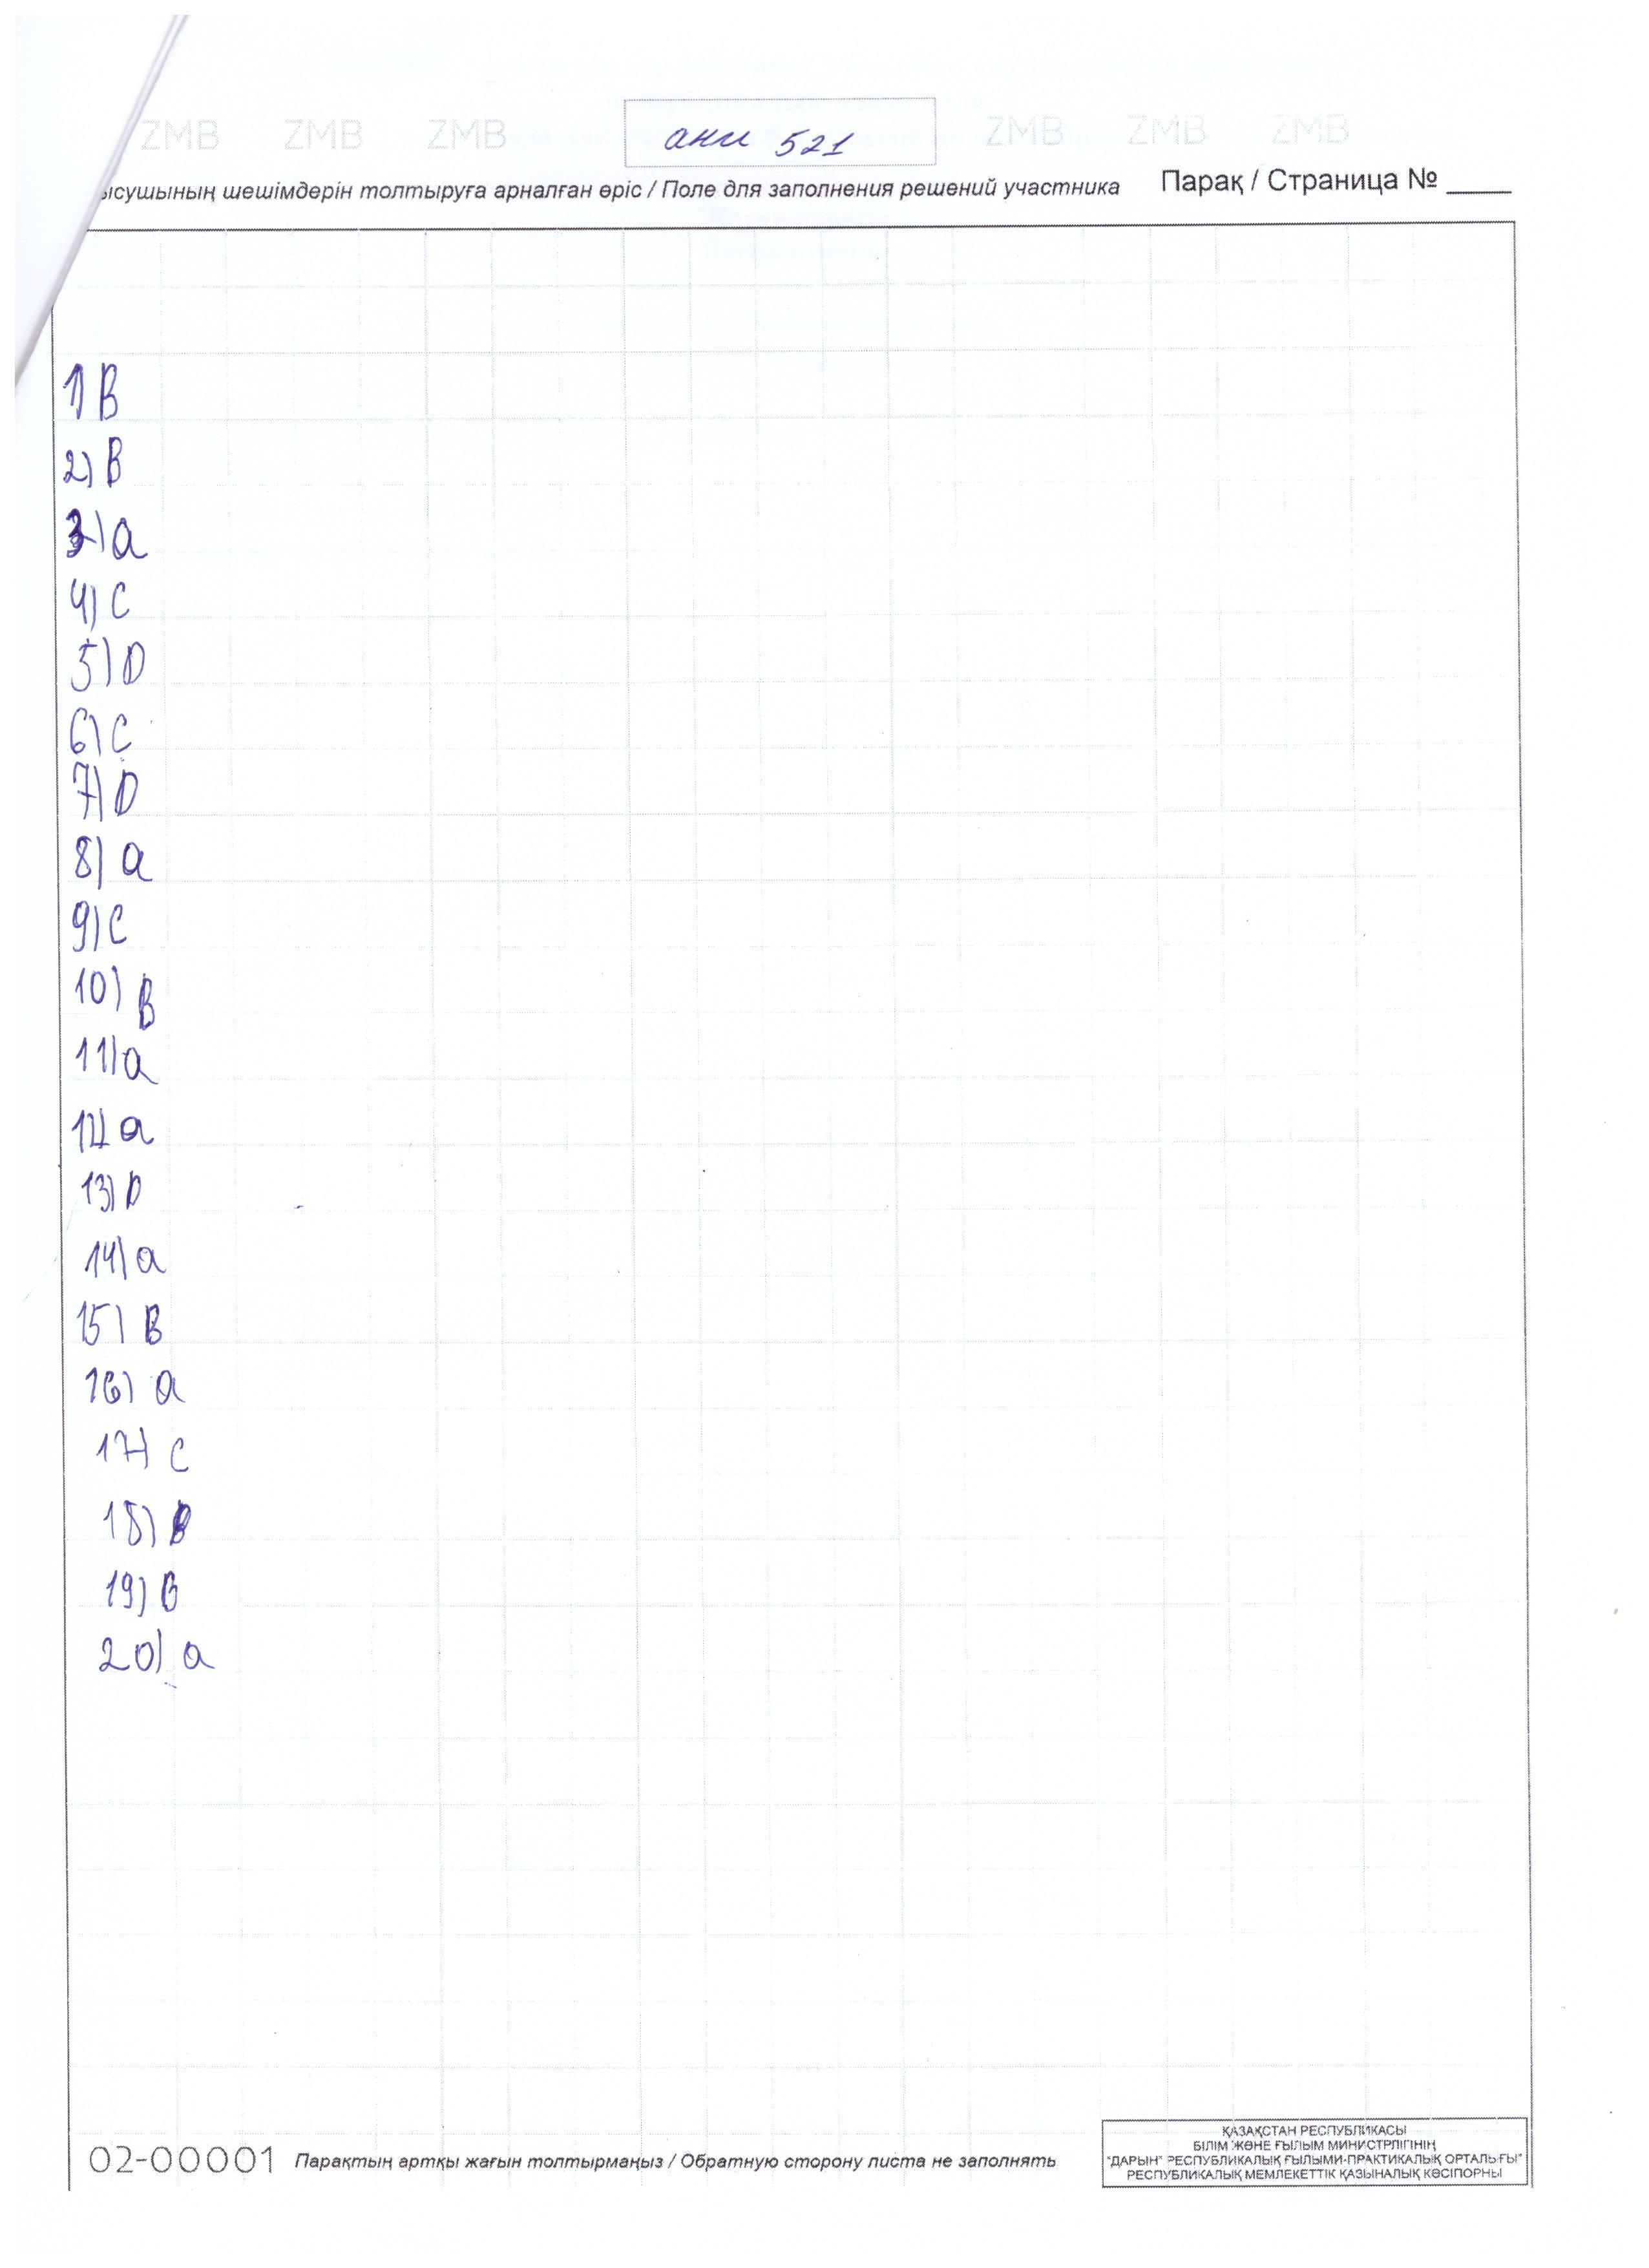 ZMB ZMB ZMB ани 521 ZMB ZMB ZMB
ысушының шешімдерін толтыруға арналған өріс / Поле для заполнения решений участника Парақ / Страница № ____
1) B
2) B
3) a
4) C
5) D
6) C
7) D
8) a
9) C
10) B
11) a
12) a
13) D
14) a
15) B
16) a
17) C
18)
19) B
20) a
02-00001 Парақтың артқы жағын толтырмаңыз / Обратную сторону листа не заполнять
ҚАЗАҚСТАН РЕСПУБЛИКАСЫ
БІЛІМ ЖӘНЕ ҒЫЛЫМ МИНИСТРЛІГІНІҢ
"ДАРЫН" РЕСПУБЛИКАЛЫҚ ҒЫЛЫМИ-ПРАКТИКАЛЫҚ ОРТАЛЫҒЫ"
РЕСПУБЛИКАЛЫҚ МЕМЛЕКЕТТІК ҚАЗЫНАЛЫҚ КӘСІПОРНЫ